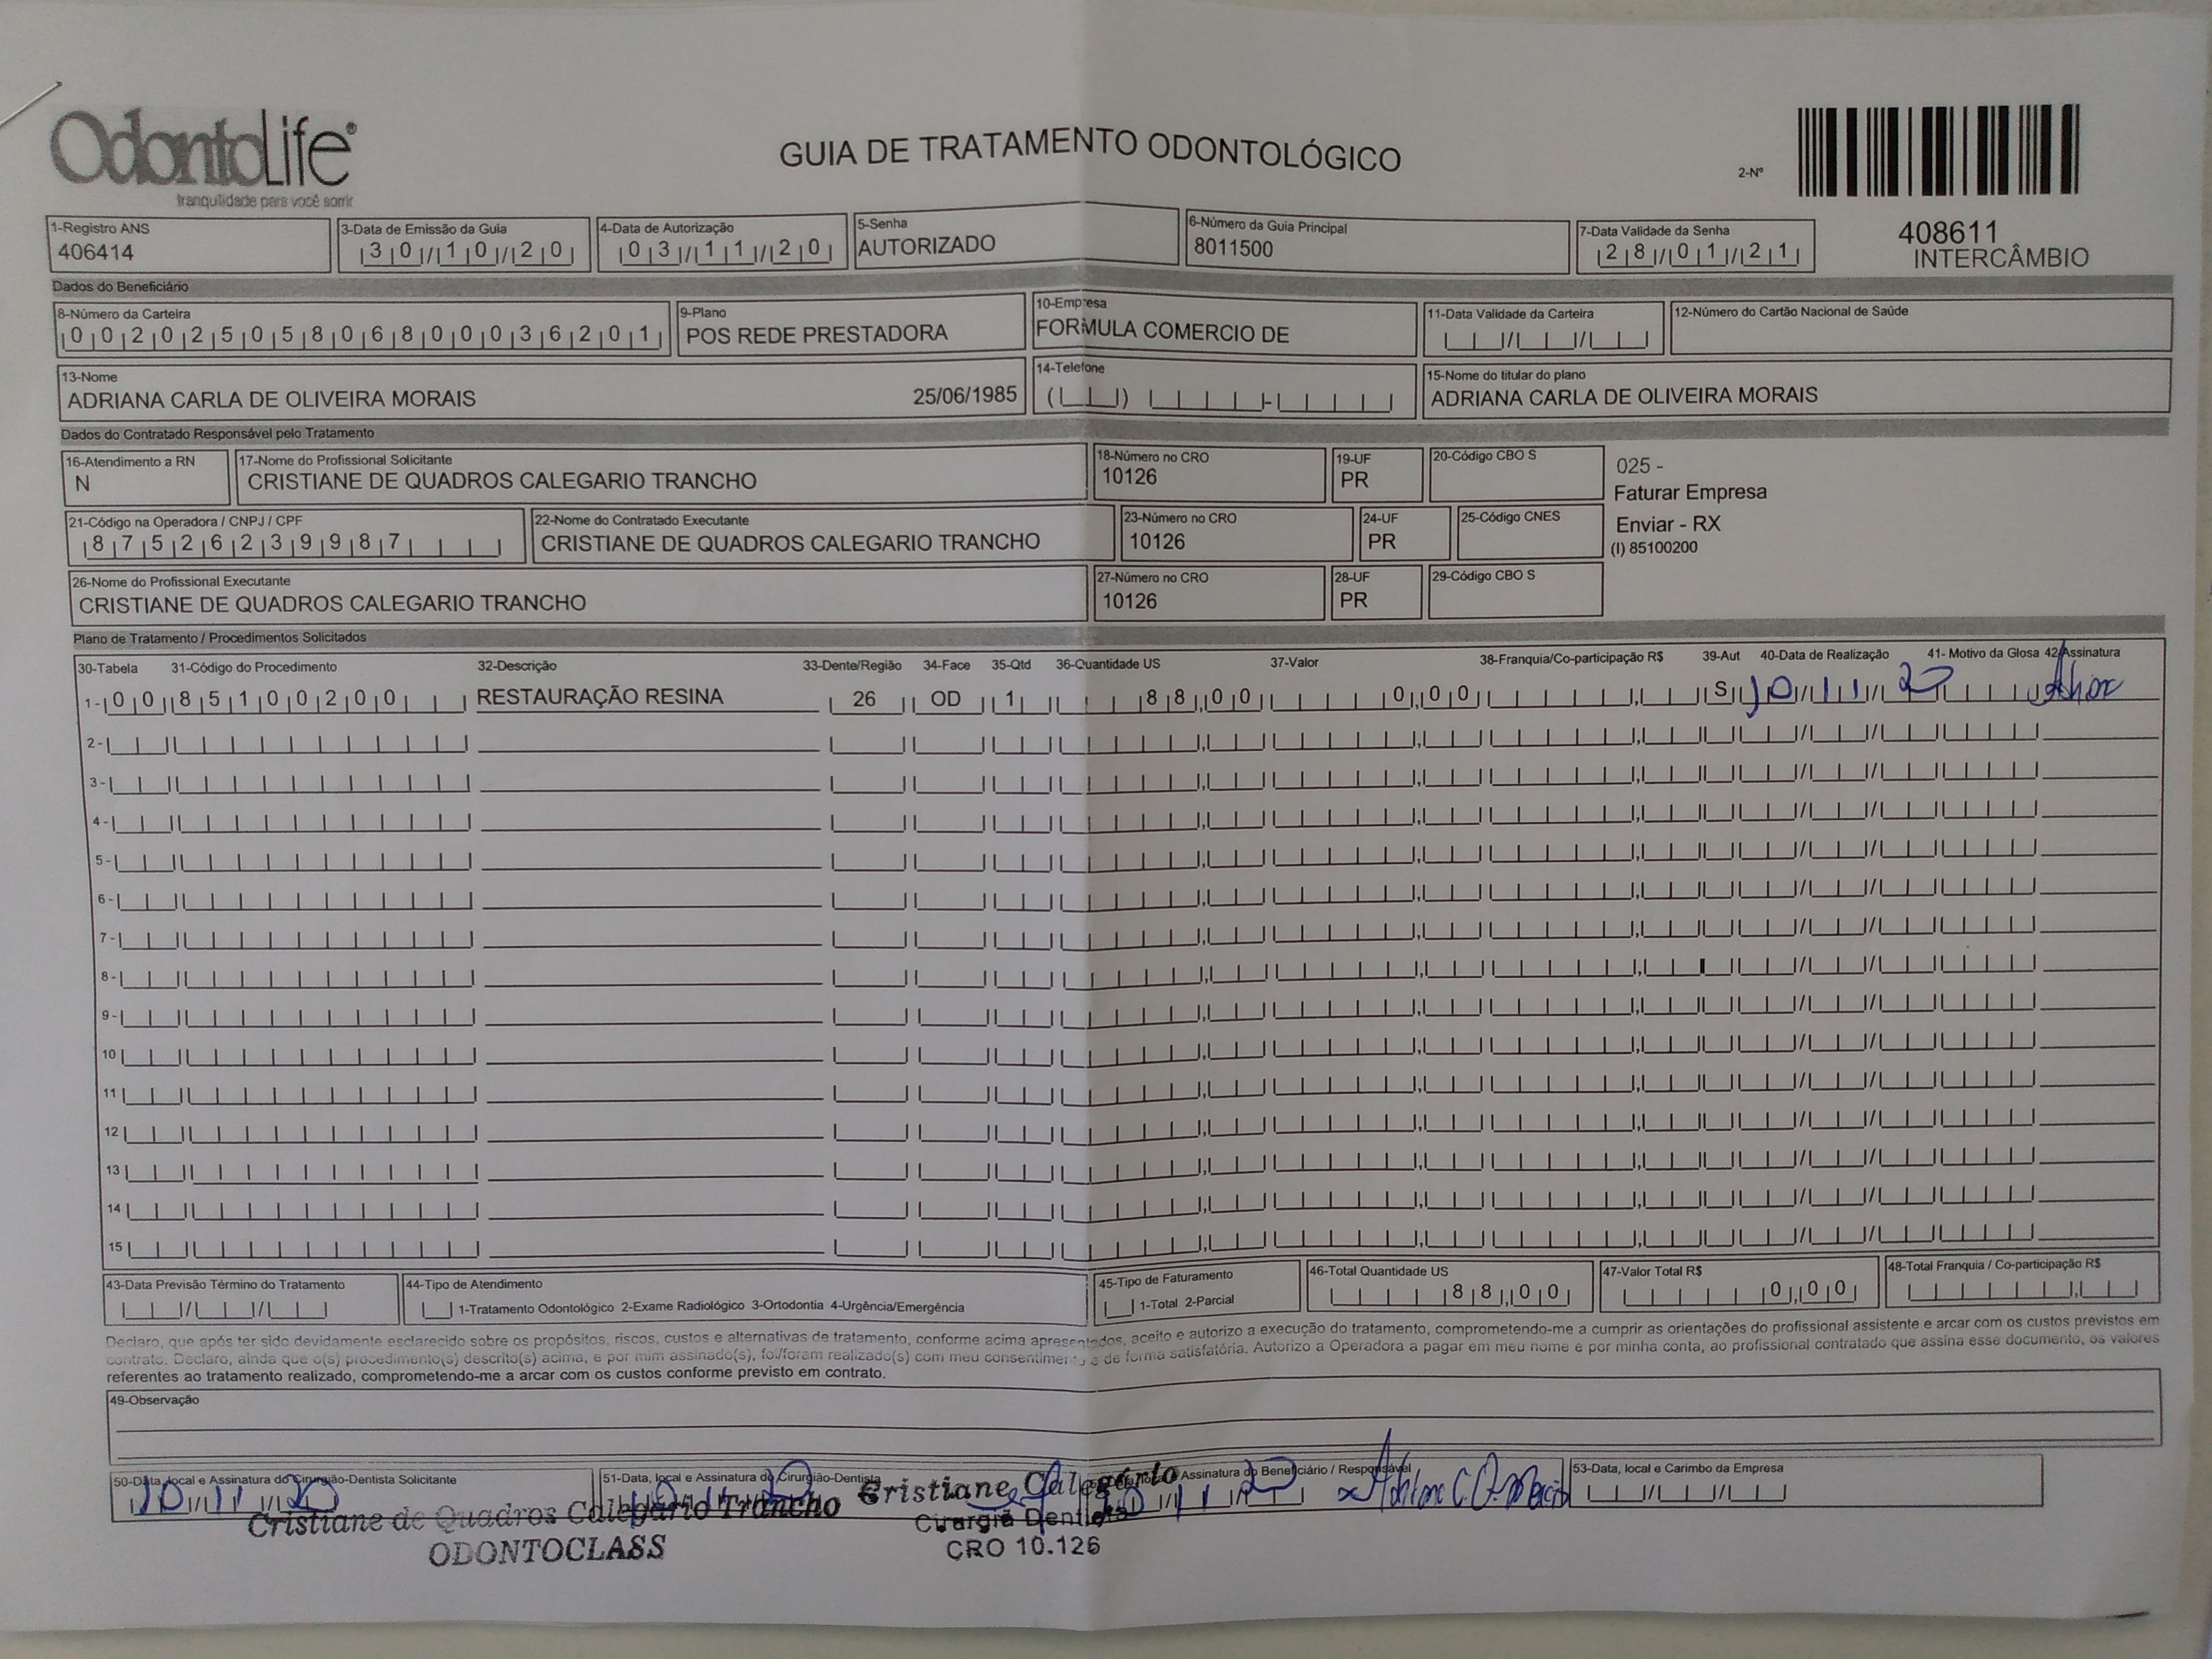 OdontoLife®
tranquilidade para você sorrir
GUIA DE TRATAMENTO ODONTOLÓGICO
2-Nº
408611
INTERCÂMBIO
1-Registro ANS
406414
3-Data de Emissão da Guia
30/10/20
4-Data de Autorização
03/11/20
5-Senha
AUTORIZADO
6-Número da Guia Principal
8011500
7-Data Validade da Senha
28/01/21
Dados do Beneficiário
8-Número da Carteira
00202505806800036201
9-Plano
POS REDE PRESTADORA
10-Empresa
FORMULA COMERCIO DE
11-Data Validade da Carteira
12-Número do Cartão Nacional de Saúde
13-Nome
ADRIANA CARLA DE OLIVEIRA MORAIS 25/06/1985
14-Telefone
15-Nome do titular do plano
ADRIANA CARLA DE OLIVEIRA MORAIS
Dados do Contratado Responsável pelo Tratamento
16-Atendimento a RN
N
17-Nome do Profissional Solicitante
CRISTIANE DE QUADROS CALEGARIO TRANCHO
18-Número no CRO
10126
19-UF
PR
20-Código CBO S
025 -
Faturar Empresa
Enviar - RX
(I) 85100200
21-Código na Operadora / CNPJ / CPF
87526239987
22-Nome do Contratado Executante
CRISTIANE DE QUADROS CALEGARIO TRANCHO
23-Número no CRO
10126
24-UF
PR
25-Código CNES
26-Nome do Profissional Executante
CRISTIANE DE QUADROS CALEGARIO TRANCHO
27-Número no CRO
10126
28-UF
PR
29-Código CBO S
Plano de Tratamento / Procedimentos Solicitados
30-Tabela 31-Código do Procedimento 32-Descrição 33-Dente/Região 34-Face 35-Qtd 36-Quantidade US 37-Valor 38-Franquia/Co-participação R$ 39-Aut 40-Data de Realização 41- Motivo da Glosa 42-Assinatura
1- 00 85100200 RESTAURAÇÃO RESINA 26 OD 1 88,00 0,00 S 10/11/20
2-
3-
4-
5-
6-
7-
8-
9-
10
11
12
13
14
15
43-Data Previsão Término do Tratamento
44-Tipo de Atendimento
1-Tratamento Odontológico 2-Exame Radiológico 3-Ortodontia 4-Urgência/Emergência
45-Tipo de Faturamento
1-Total 2-Parcial
46-Total Quantidade US
88,00
47-Valor Total R$
0,00
48-Total Franquia / Co-participação R$
Declaro, que após ter sido devidamente esclarecido sobre os propósitos, riscos, custos e alternativas de tratamento, conforme acima apresentados, aceito e autorizo a execução do tratamento, comprometendo-me a cumprir as orientações do profissional assistente e arcar com os custos previstos em
contrato. Declaro, ainda que o(s) procedimento(s) descrito(s) acima, e por mim assinado(s), foi/foram realizado(s) com meu consentimento e de forma satisfatória. Autorizo a Operadora a pagar em meu nome e por minha conta, ao profissional contratado que assina esse documento, os valores
referentes ao tratamento realizado, comprometendo-me a arcar com os custos conforme previsto em contrato.
49-Observação
50-Data, local e Assinatura do Cirurgião-Dentista Solicitante
10/11/20
51-Data, local e Assinatura do Cirurgião-Dentista
10/11/20
Assinatura do Beneficiário / Responsável
10/11/20
53-Data, local e Carimbo da Empresa
Cristiane de Quadros Calegario Trancho
ODONTOCLASS
Cristiane Calegário
Cirurgiã Dentista
CRO 10.126